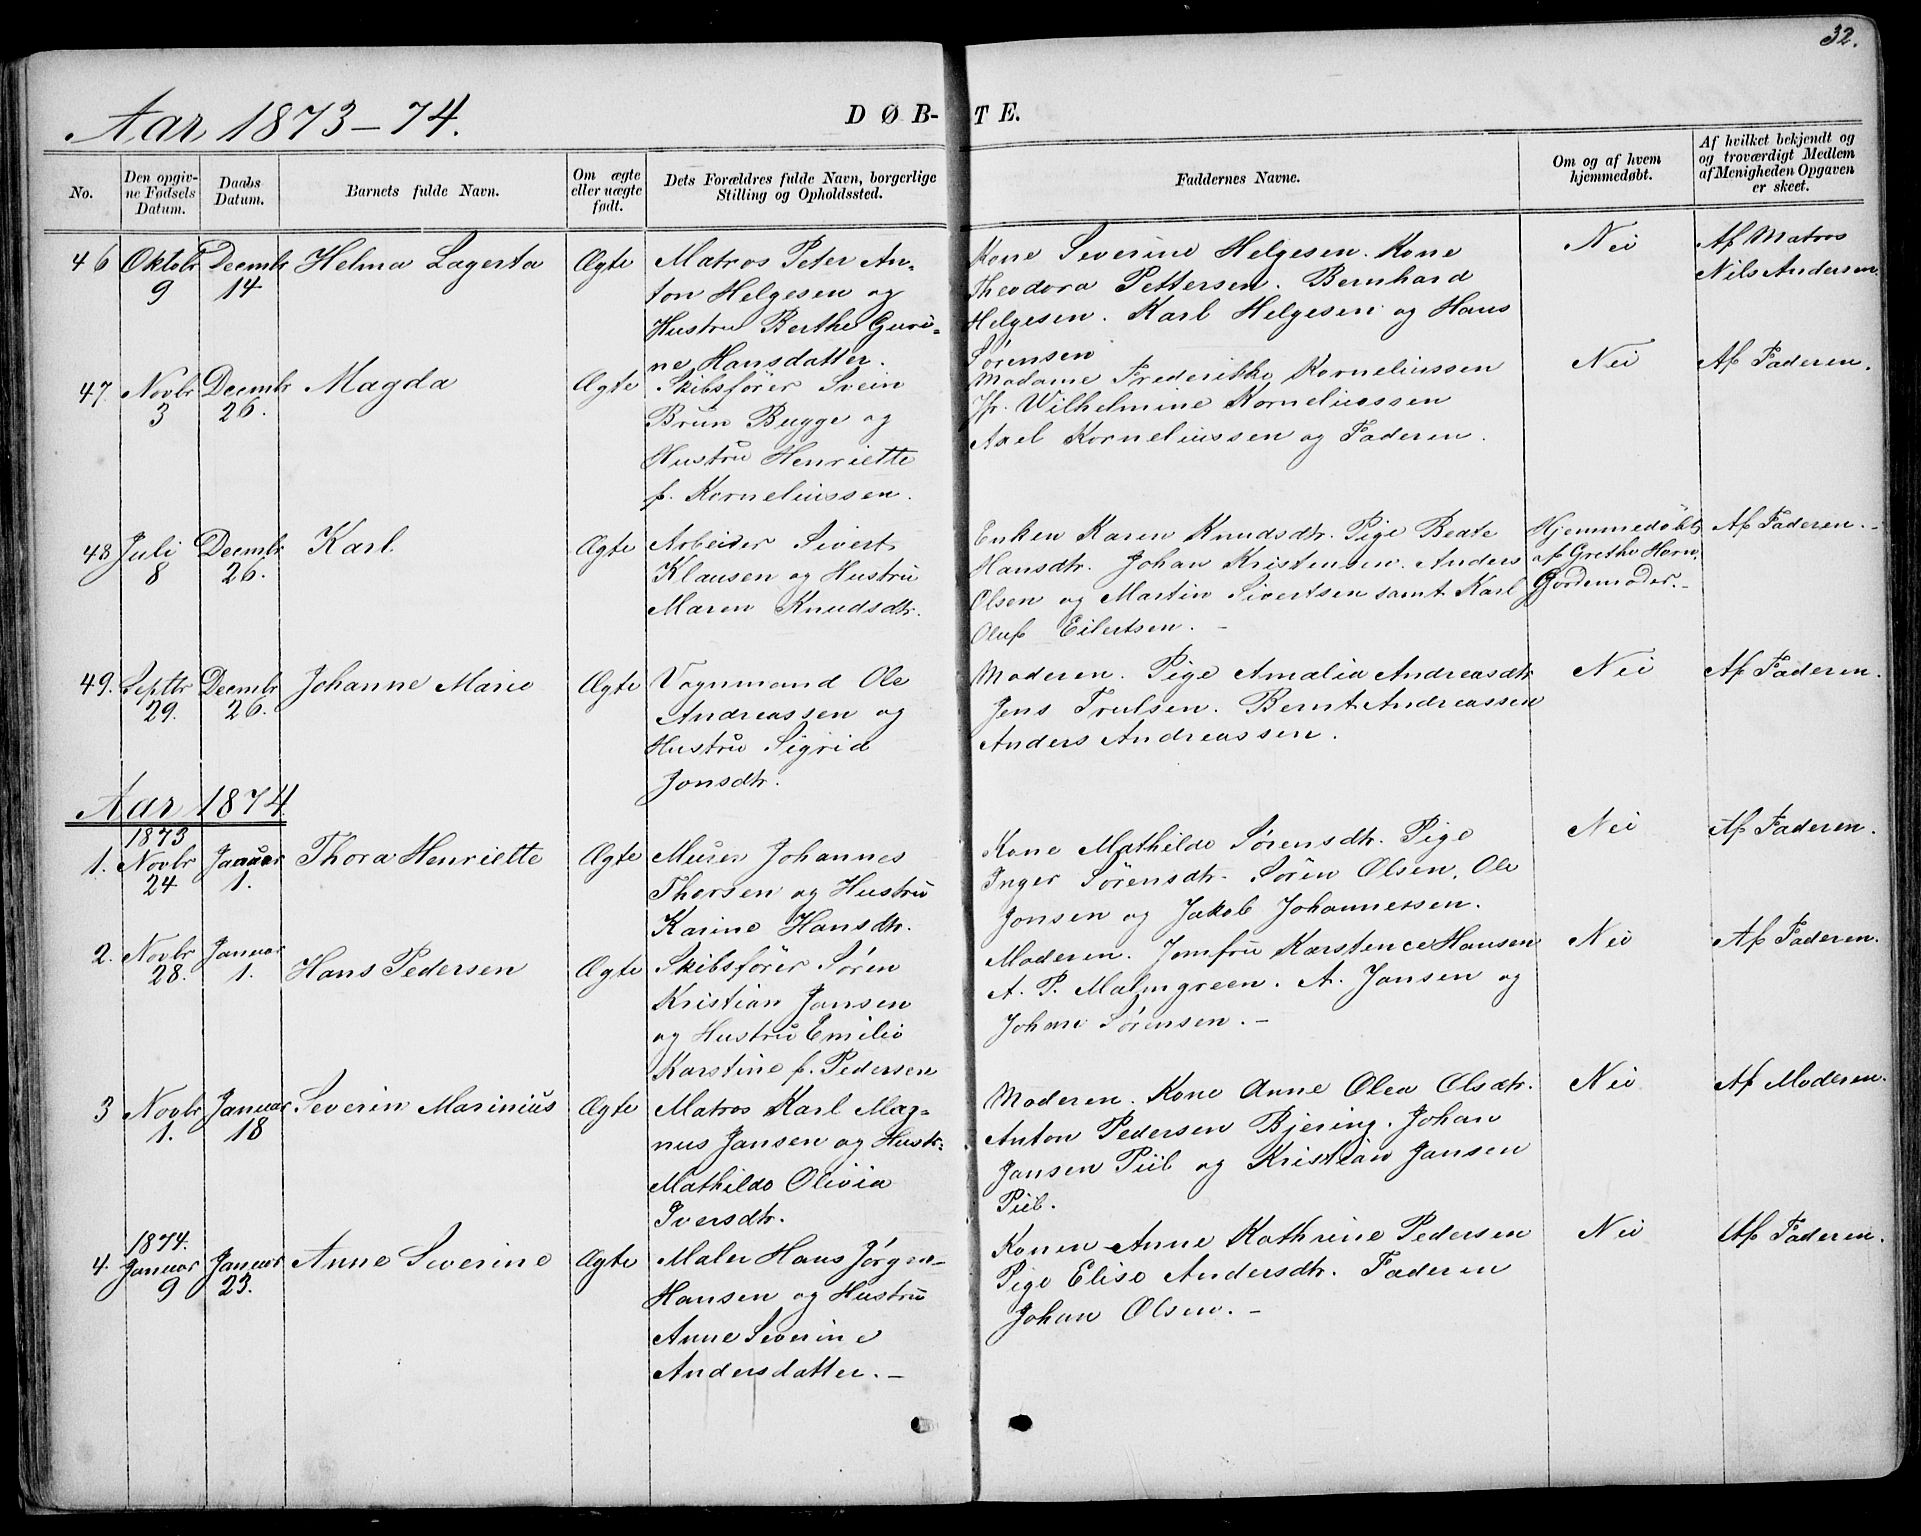 32.
Aar 1873-74.
DØB- TE.
No.
Den opgiv-
ne Fødsels
Datum.
Daabs
Datum.
Barnets fulde Navn.
Om ægte
eller uægte
født.
Dets Forældres fulde Navn, borgerlige
Stilling og Opholdssted.
Faddernes Navne.
Om og af hvem
hjemmedøbt.
Af hvilket bekjendt og
og troværdigt Medlem
af Menigheden Opgaven
er skeet.
46 Oktobr Decmbr Helma Lagerta Ægte
9 14
Matros Peter An-
ton Helgesen og
Hustru Berthe Guri-
ne Hansdatter.
Kone Severine Helgesen. Kone
Theodora Pettersen. Bernhard
Helgesen. Karl Helgesen og Hans
Sörensen
Nei
Af Matros
Nils Andersen.
47. Novbr Decmbr Magda Ægte
3 26.
Skibsförer Svein
Brun Bugge og
Hustru Henriette
f. Korneliussen.
Madame Frederikke Korneliussen
Jfr. Wilhelmine Korneliussen
Axel Korneliussen og Faderen.
Nei
Af Faderen.
48 Juli Decmbr Karl Ægte
8 26.
Arbeider Sivert
Klausen og Hustru
Maren Knudsdtr.
Enken Karen Knudsdtr. Pige Beate
Hansdtr. Johan Kristensen. Anders
Olsen og Martin Sivertsen samt Karl
Oluf Eilertsen. -
Hjemmedøbt
af Grethe Horn,
Gjordemoder. -
Af Faderen. -
49. Septbr Decmbr Johanne Marie Ægte
29. 26.
Vognmand Ole
Andreassen og
Hustru Sigrid
Jonsdtr.
Moderen. Pige Amalia Andreasdtr
Jens Trulsen. Bernt Andreassen
Anders Andreassen.
Nei
Af Faderen.
Aar 1874
1873
1. Novbr Januar Thora Henriette Ægte
24 1.
Murer Johannes
Thorsen og Hustru
Karine Hansdtr.
Kone Mathilde Sørensdtr. Pige
Inger Sörensdtr. Sören Olsen, Ole
Jonsen og Jakob Johannessen.
Nei
Af Faderen.
2. Novbr Januar Hans Pedersen Ægte
28. 1.
Skibsförer Sören
Kristian Jansen
og Hustru Emilie
Karstine f. Pedersen
Moderen. Jomfru Karstence Hansen
A. P. Malmgreen. A. Jansen og
Johan Sörensen. -
Nei
Af Faderen.
3 Novbr Januar Severin Marinius Ægte
1. 18
Matros Karl Mag-
nus Jansen og Hustr.
Mathilde Olivia
Iversdtr.
Moderen. Kone Anne Olea Olsdtr.
Anton Pedersen Bjering. Johan
Jansen Piil og Kristian Jansen
Piil.
Nei
Af Moderen.
1874.
4. Januar Januar Anne Severine Ægte
9 23.
Maler Hans Jörgen
Hansen og Hustru
Anne Severine
Andersdatter. -
Konen Anne Kathrine Pedersen
Pige Elise Andersdtr. Faderen
Johan Olsen. -
Nei
Af Faderen.